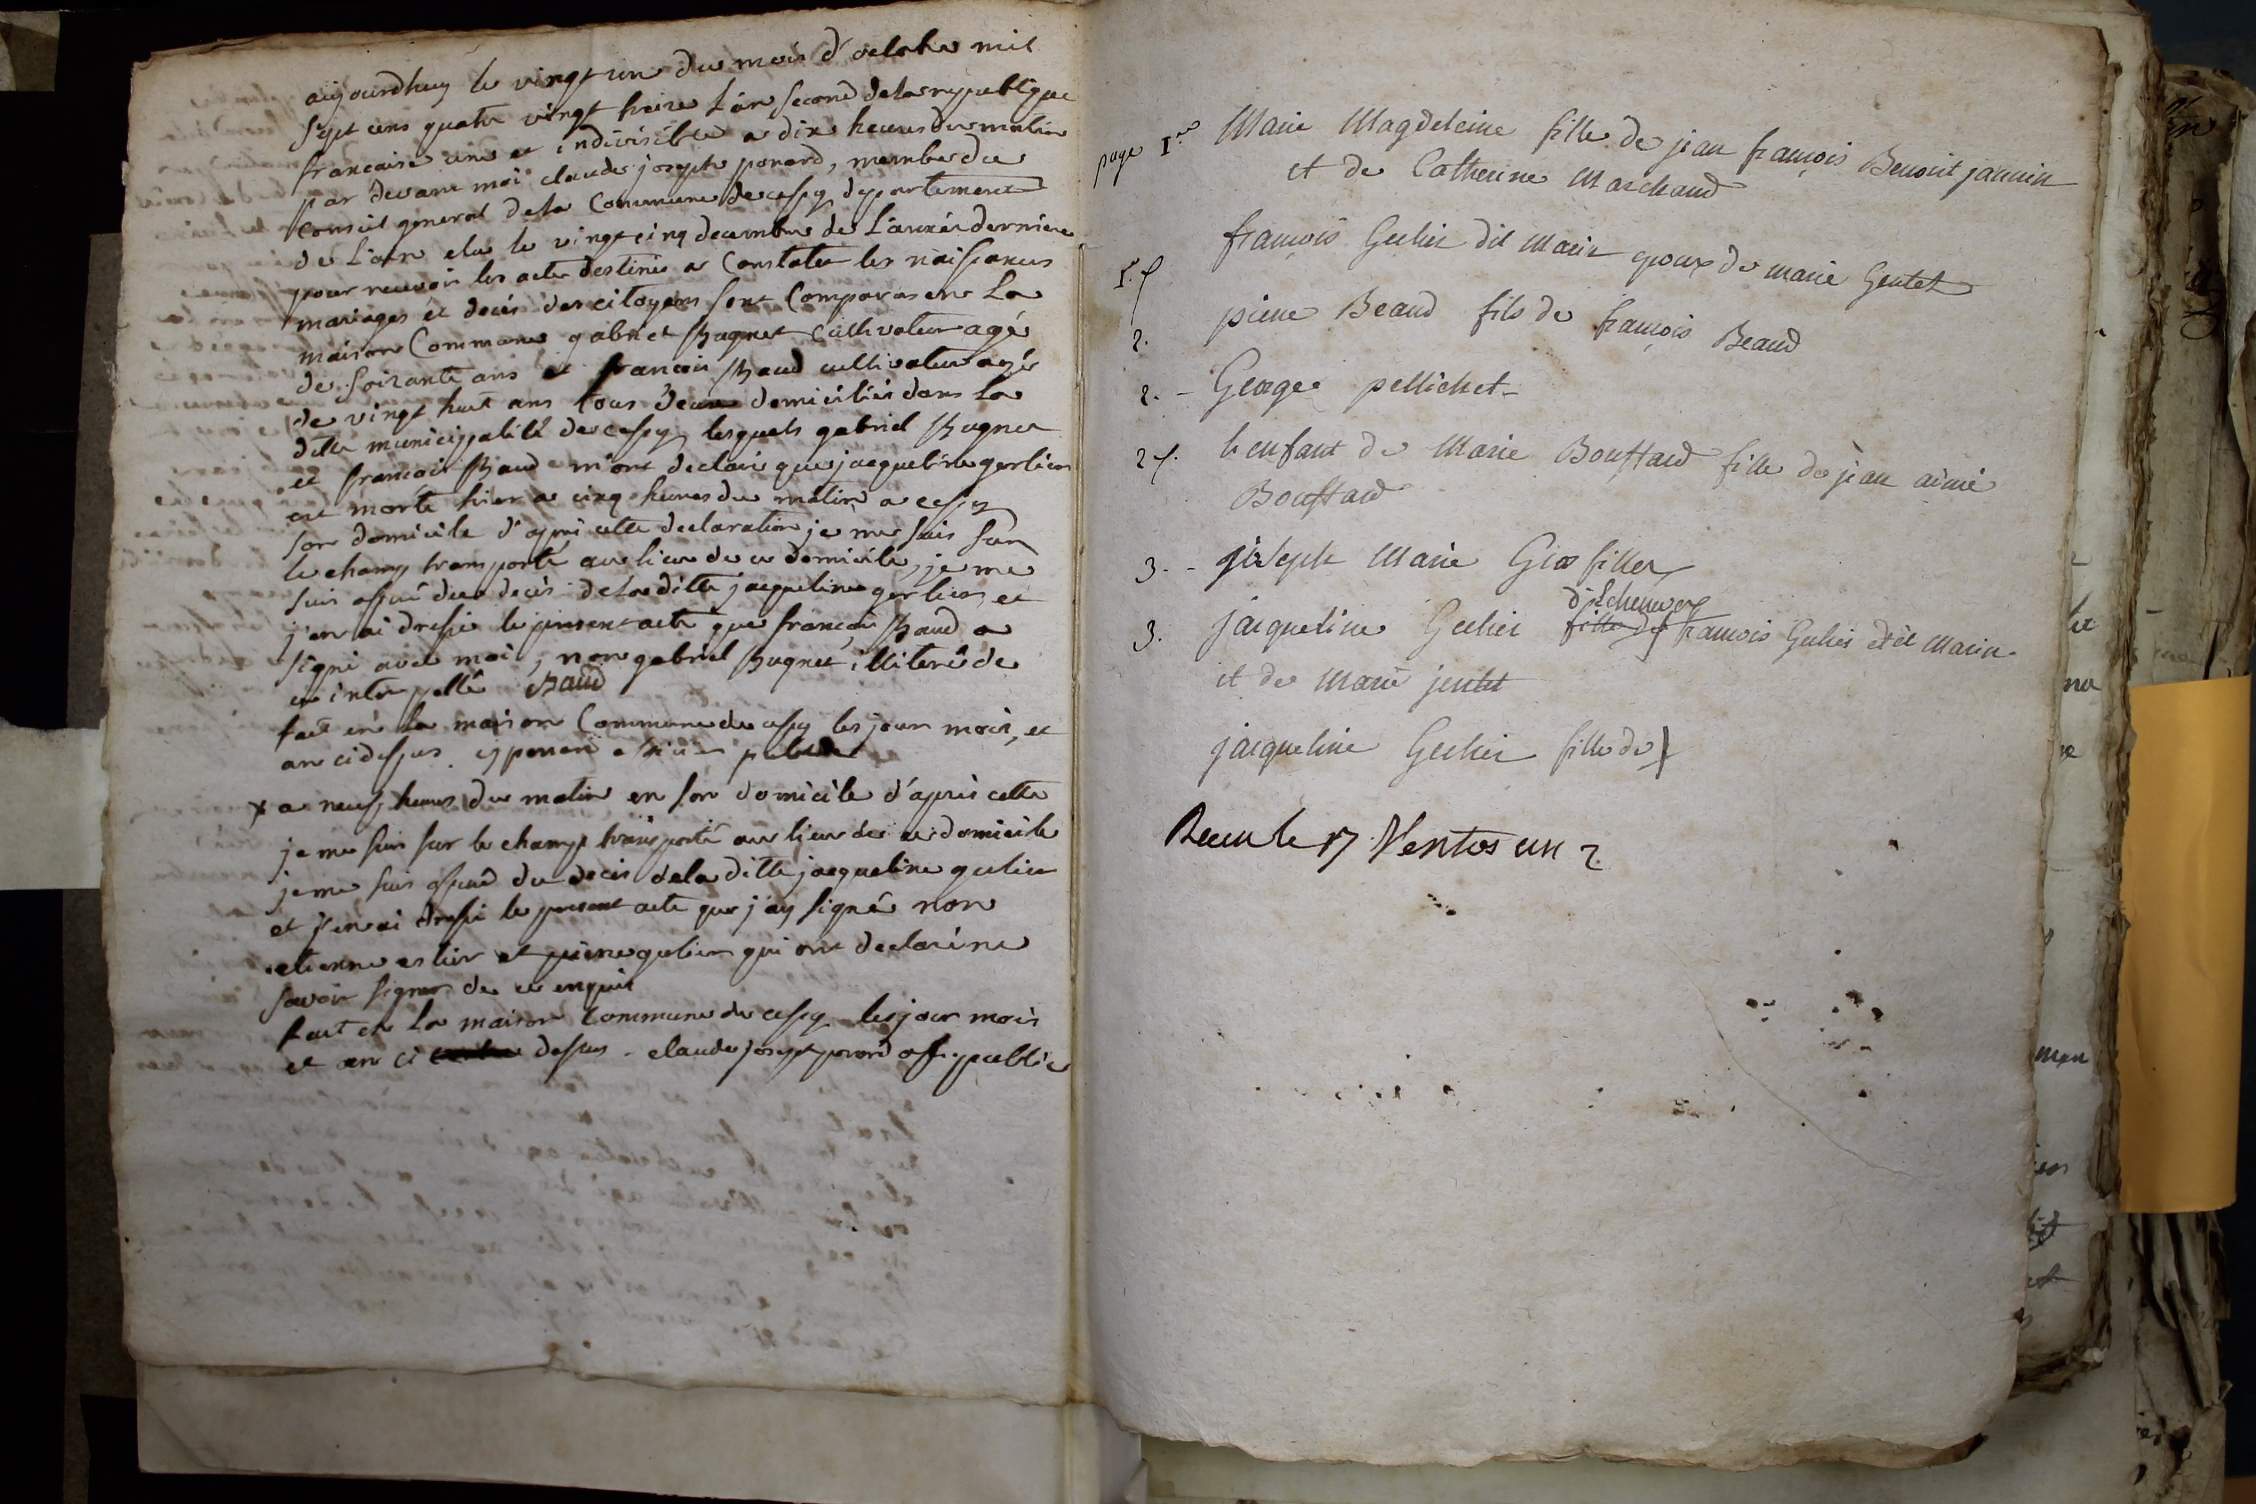 aujourdhuy le vingt un du mois d'octobre mil
sept cens quatre vingt treize l'an second de la republique
francaise une et indivisible a dix heures du matin
par devant moi claude joseph ponard, membre du
Conseil general de la Commune de cessy departement
de L'ain elu le vingt cinq decembre de L'année derniere
pour recevoir les actes destinés a Constater les naissances
mariages et decés des citoyens sont Comparus en La
maison Commune gabriel Bugnet Cultivateur agé
de soixante ans et francois Baud cultivateur agés
de vingt huit ans tous deux domiciliés dans La
ditte municippalité de cessy lesquels gabriel Bugnet
et francois Baud m'ont declaré que jacqueline gerlier
est morte hier a cinq heures du matin a cessy
son domicile d'apres cette declaration je me suis sur
le champ transporté au lieu de ce domicile, je me
suis assuré du decés de la ditte jacqueline gerlier et
j'en ai dressé le present acte que francois Baud a
signé avec moi, non gabriel Bugnet illiteré de
ce interpellé Baud
fait en la maison Commune de cessy les jour mois, et
an cidessus. cj ponard officier public
x a neuf heures du matin en son domicile d'après cette
je me suis sur le champt transporté au lieu de ce domicile
je me suis assuré du decés de la ditte jacqueline gerlier
et j'en ai dressé le present acte que j'ay signé non
etienne estier et pierre gerlier qui ont declaré ne
savoir signer de ce enquis
fait en la maison Commune de cessy les jour mois
et an ci dessus. claude joseph ponard off. public
page 1re Marie Magdeleine fille de jean françois Benoit jannin
et de Catherine Marchand
françois Gerlier dit Marin epoux de marie Gentet
2. pierre Beaud fils de françois Beaud
2. - George pellichet
l'enfant de Marie Bouffard fille de jean aimé
Bouffard
3. - joseph Marie Grosfiller
d'Echenevex
3. jacqueline Gerlier fille de françois Gerlier dit Marin
et de Marie jentet
jacqueline Gerlier fille de
Recu le 17 Ventos an 2